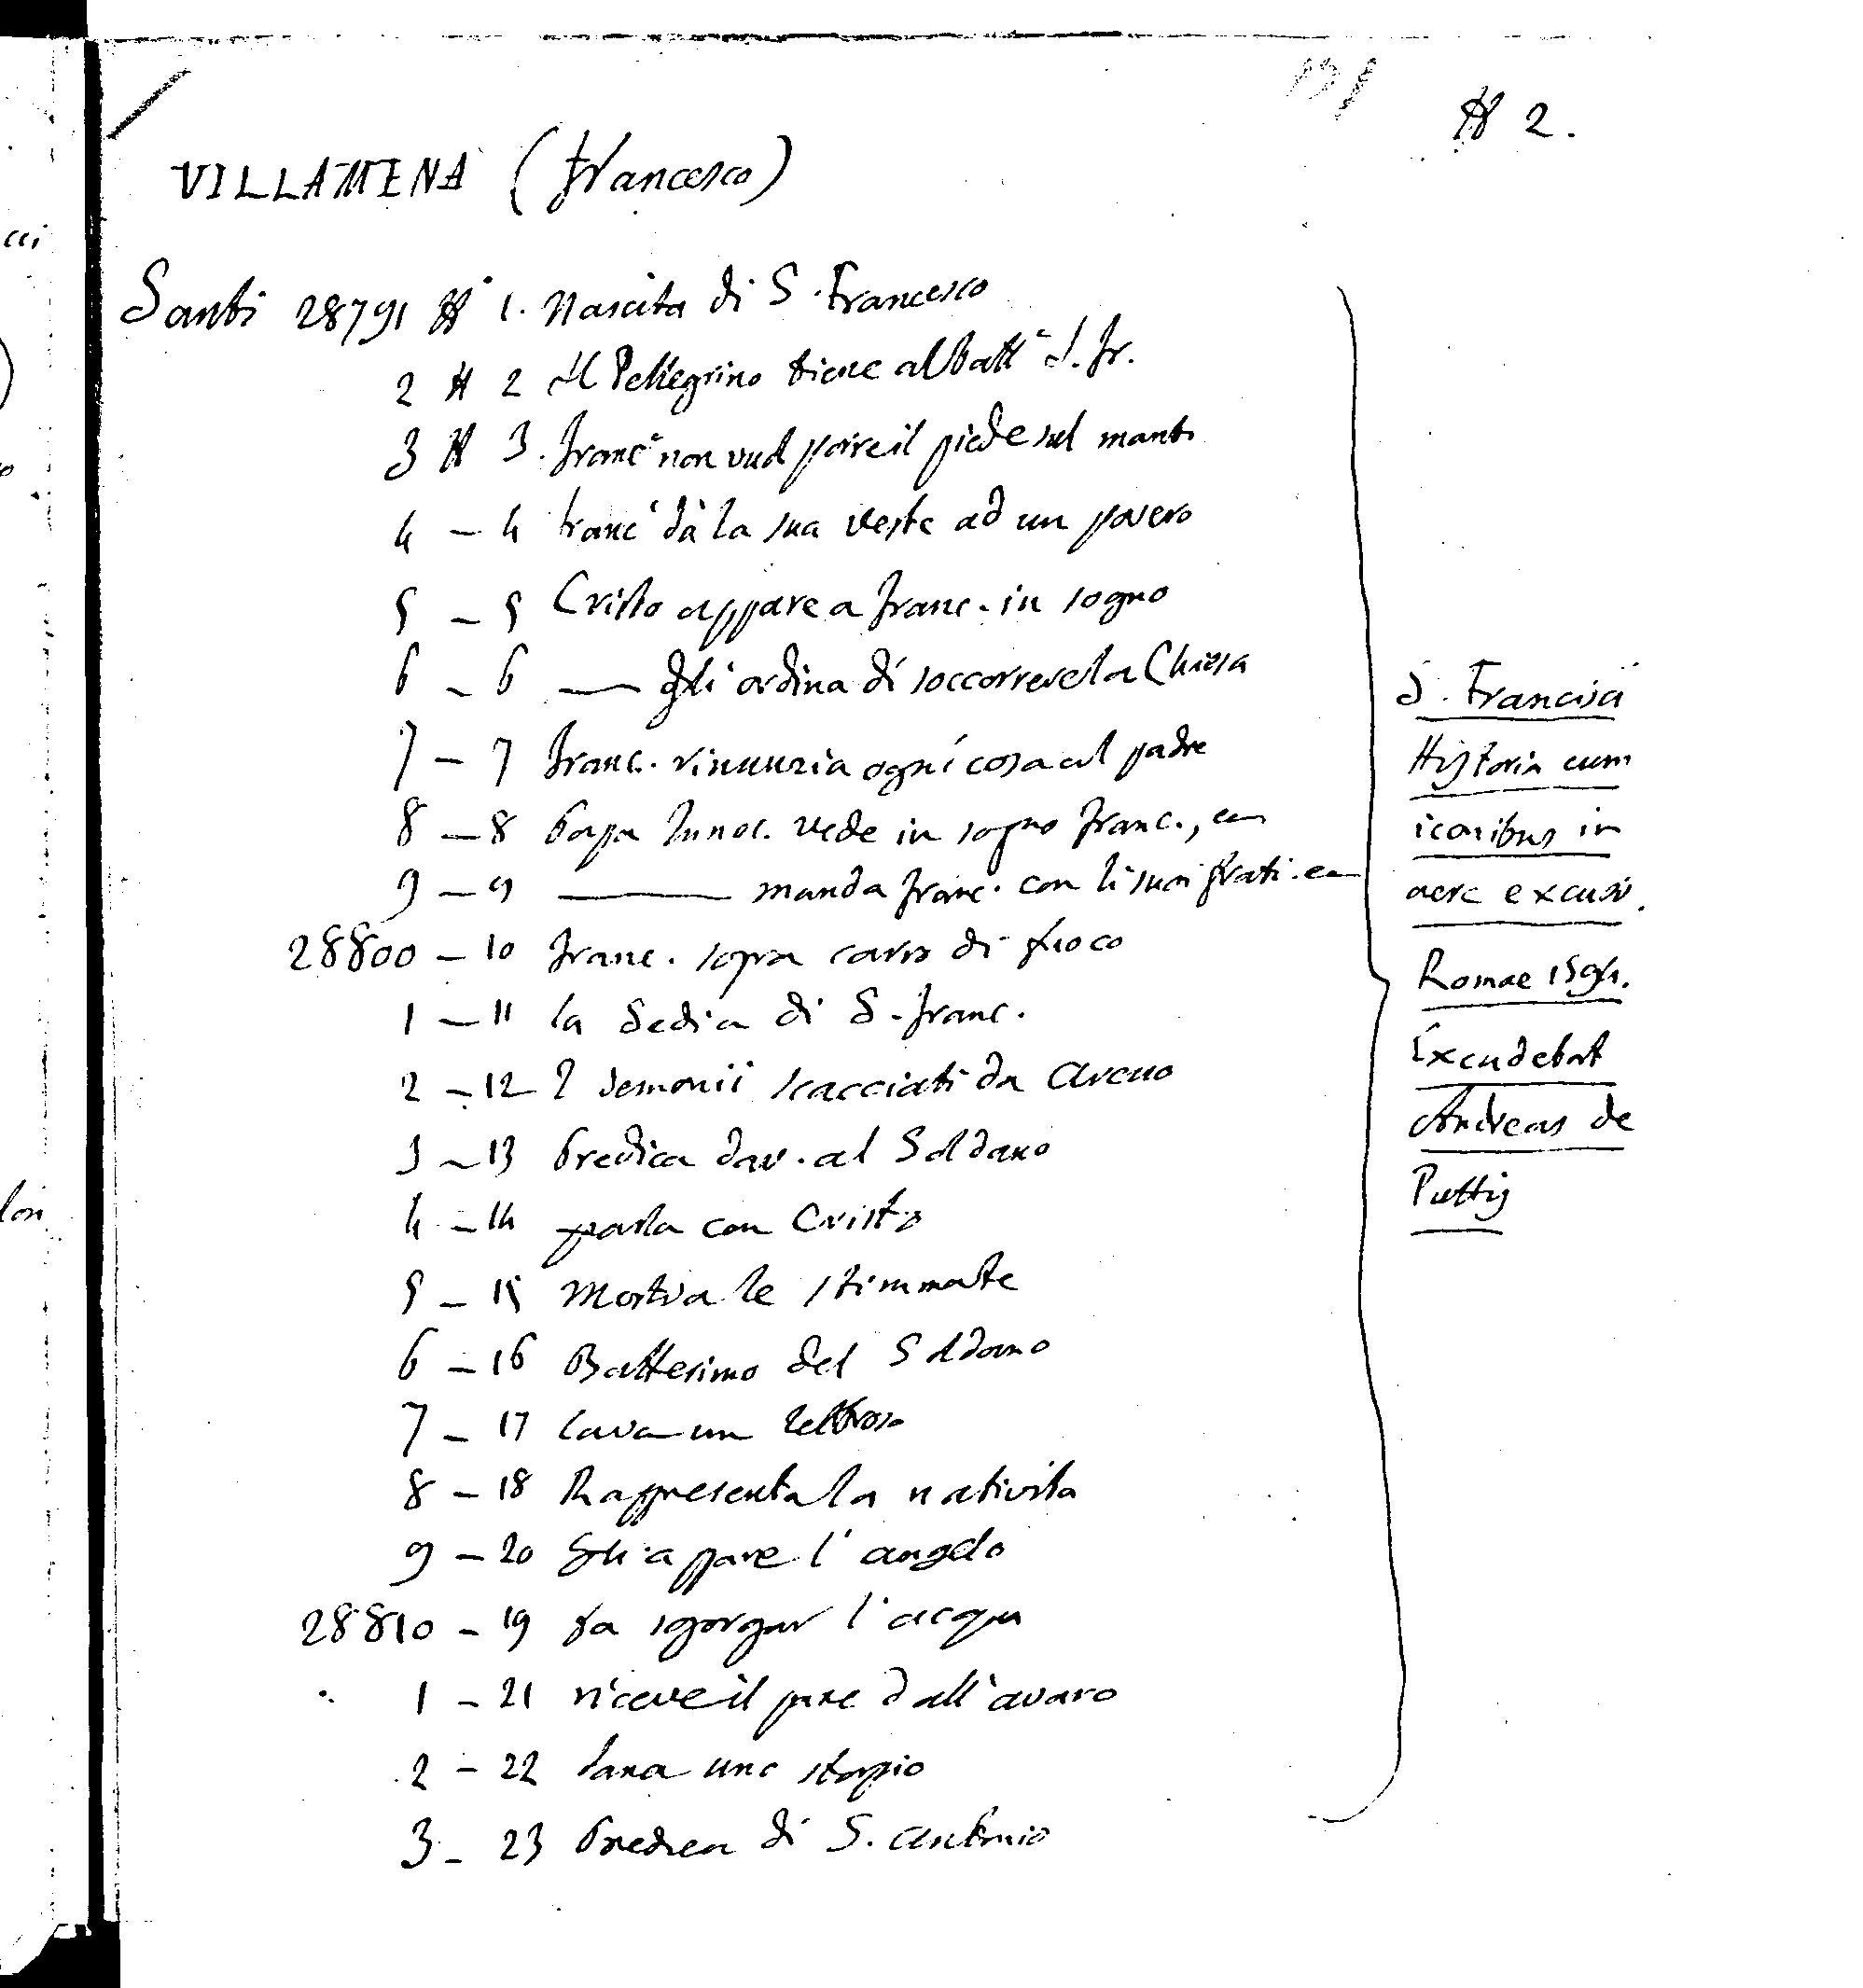 N 2.
VILLAMENA (Francesco)
Santi 28791 N° 1. Nascita di S. Francesco
2 N 2 Il Pellegrino tiene al batt° S. Fr.
3 N 3. Franc° non vuol porre il piede sul manto
4 – 4 Franc° dà la sua veste ad un povero
5 – 5 Cristo appare a Franc. in sogno
6 – 6 — gli ordina di soccorrere la Chiesa
7 – 7 Franc. rinunzia ogni cosa al padre
8 – 8 Papa Innoc. vede in sogno Franc.,
9 – 9 — manda Franc. con li suoi frati
28800 – 10 Franc. sopra carro di fuoco
1 – 11 la Sedia di S. Franc.
2 – 12 I demonii scacciati da Arezzo
3 – 13 Predica dav. al Soldano
4 – 14 parla con Cristo
5 – 15 Mostra le stimmate
6 – 16 Battesimo del Soldano
7 – 17 lava un lebbroso
8 – 18 Rappresenta la natività
9 – 20 Gli appare l'angelo
28810 – 19 fa sgorgar l'acqua
1 – 21 riceve il pane dall'avaro
2 – 22 Sana uno storpio
3 – 23 Predica di S. Antonio
S. Francisci
Historia cum
iconibus in
aere excusis.
Romae 1594.
Excudebat
Andreas de
Puttis